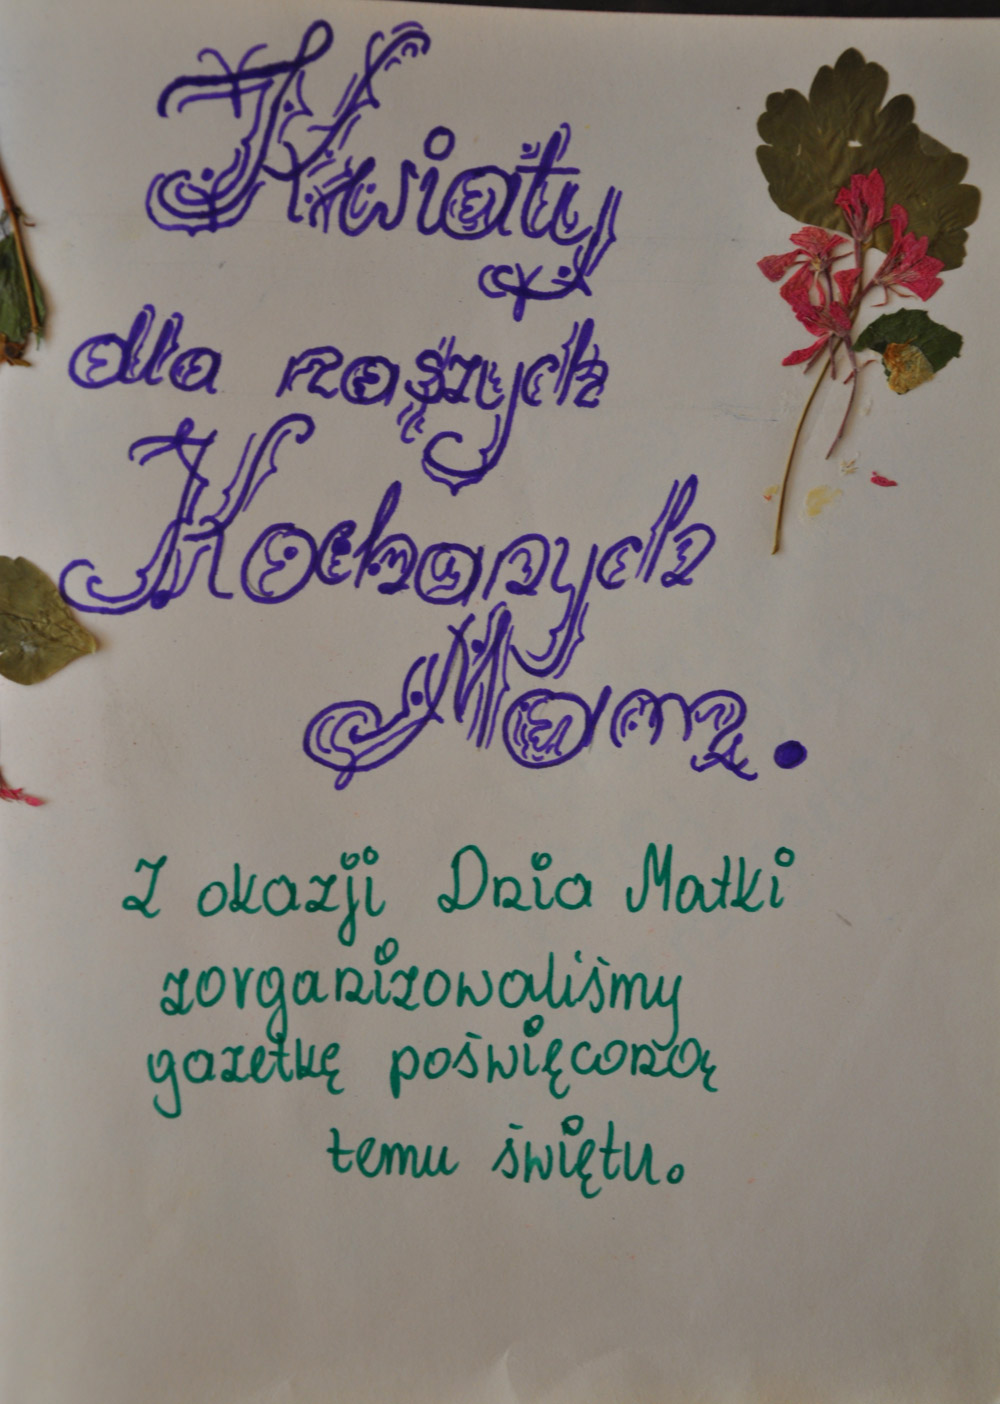 Kwiaty
dla naszych
Kochanych
Mam.
Z okazji Dnia Matki
zorganizowaliśmy
gazetkę poświęconą
temu świętu.